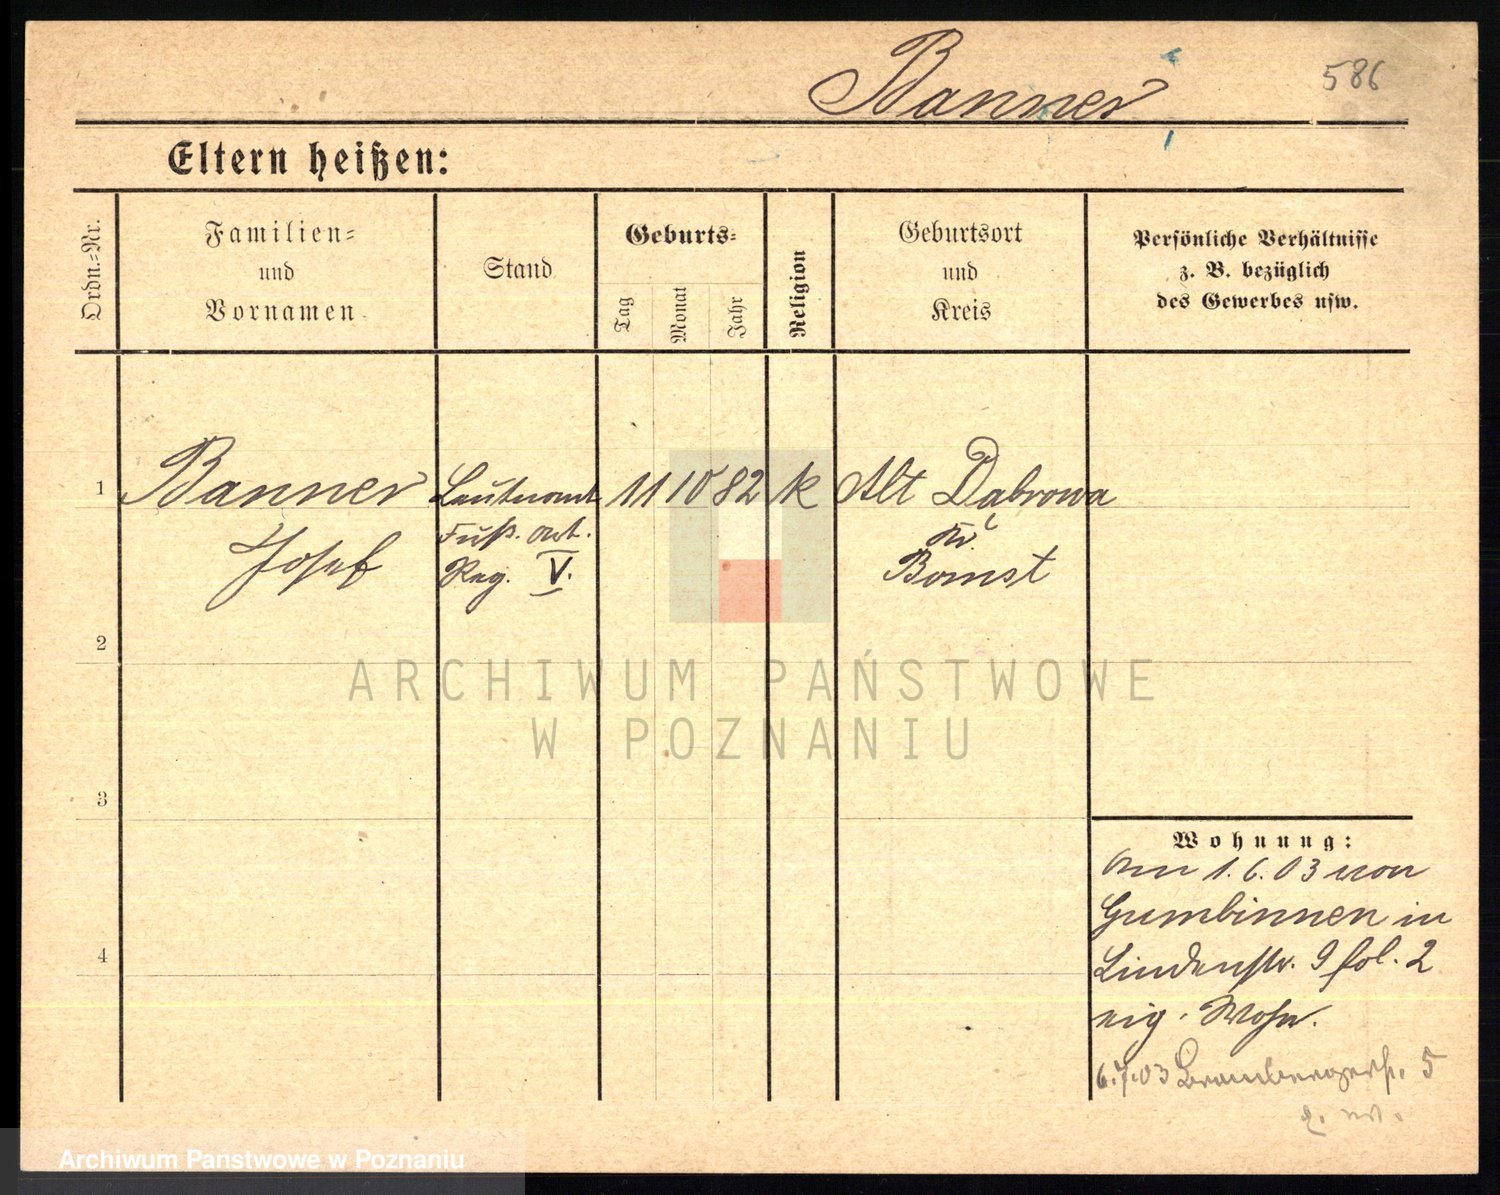 Banner
586
Eltern heißen:
Ordn.-Nr.
Familien-
und
Vornamen
Stand
Geburts-
Tag
Monat
Jahr
Religion
Geburtsort
und
Kreis
Persönliche Verhältnisse
z. B. bezüglich
des Gewerbes usw.
1 Banner Leutnant 11 10 82 k Alt Dąbrowa
Josef
Fuß. art.
Reg. V.
Kr.
Bomst
2
3
4
ARCHIWUM PAŃSTWOWE
W POZNANIU
Wohnung:
Am 1.6.03 von
Gumbinnen in
Lindenstr. 9 fol. 2
eig. Wohn.
6.7.03 Brombergerstr. 5
Archiwum Państwowe w Poznaniu